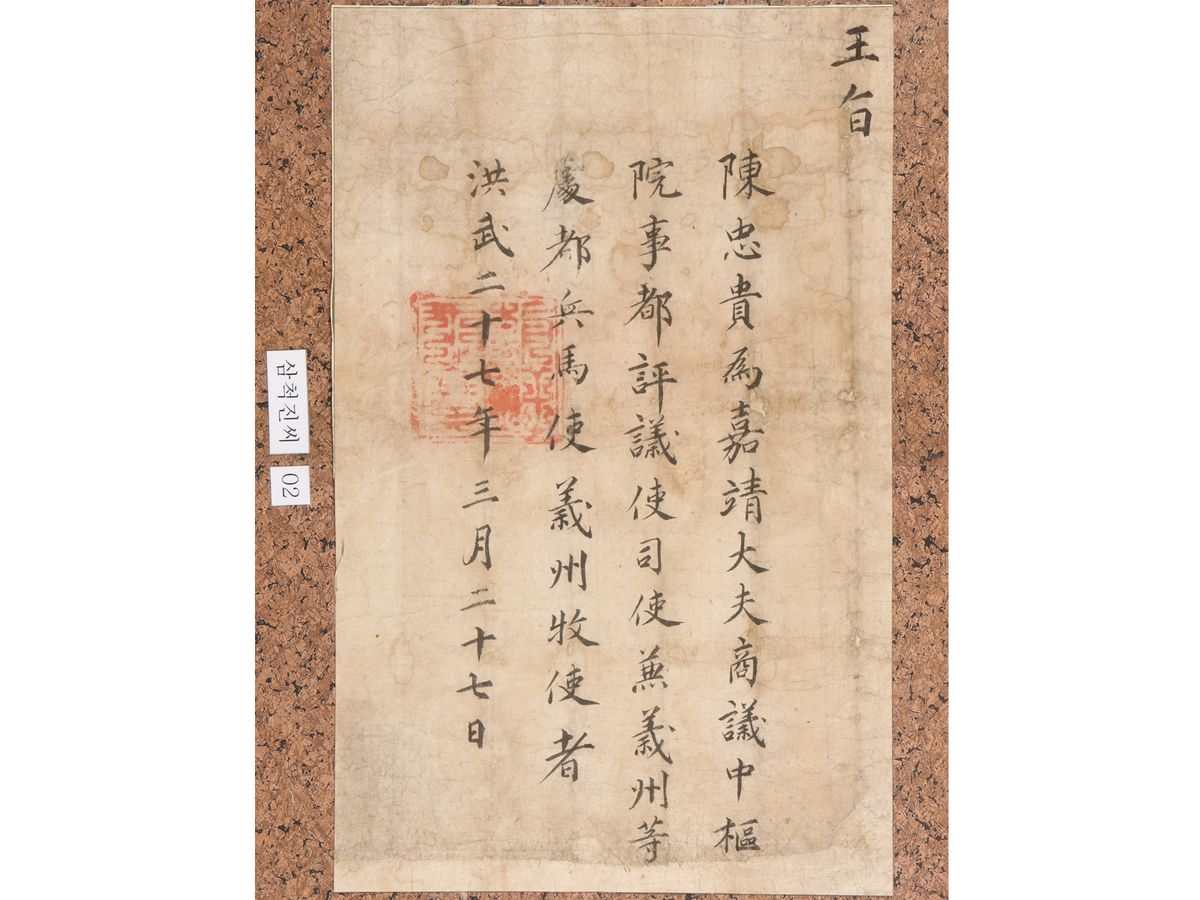 王旨
陳忠貴爲嘉靖大夫商議中樞
院事都評議使司使兼義州等
處都兵馬使義州牧使者
洪武二十七年三月二十七日
삼척진씨
02